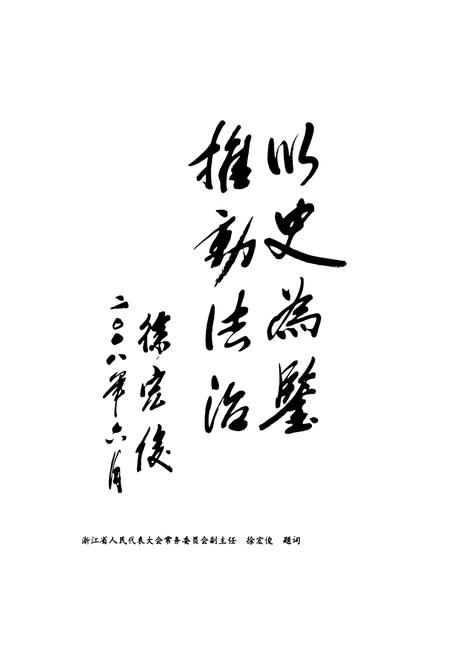 以史為鑒
推動法治
徐宏俊
二〇〇八年六月
浙江省人民代表大会常务委员会副主任 徐宏俊 题词